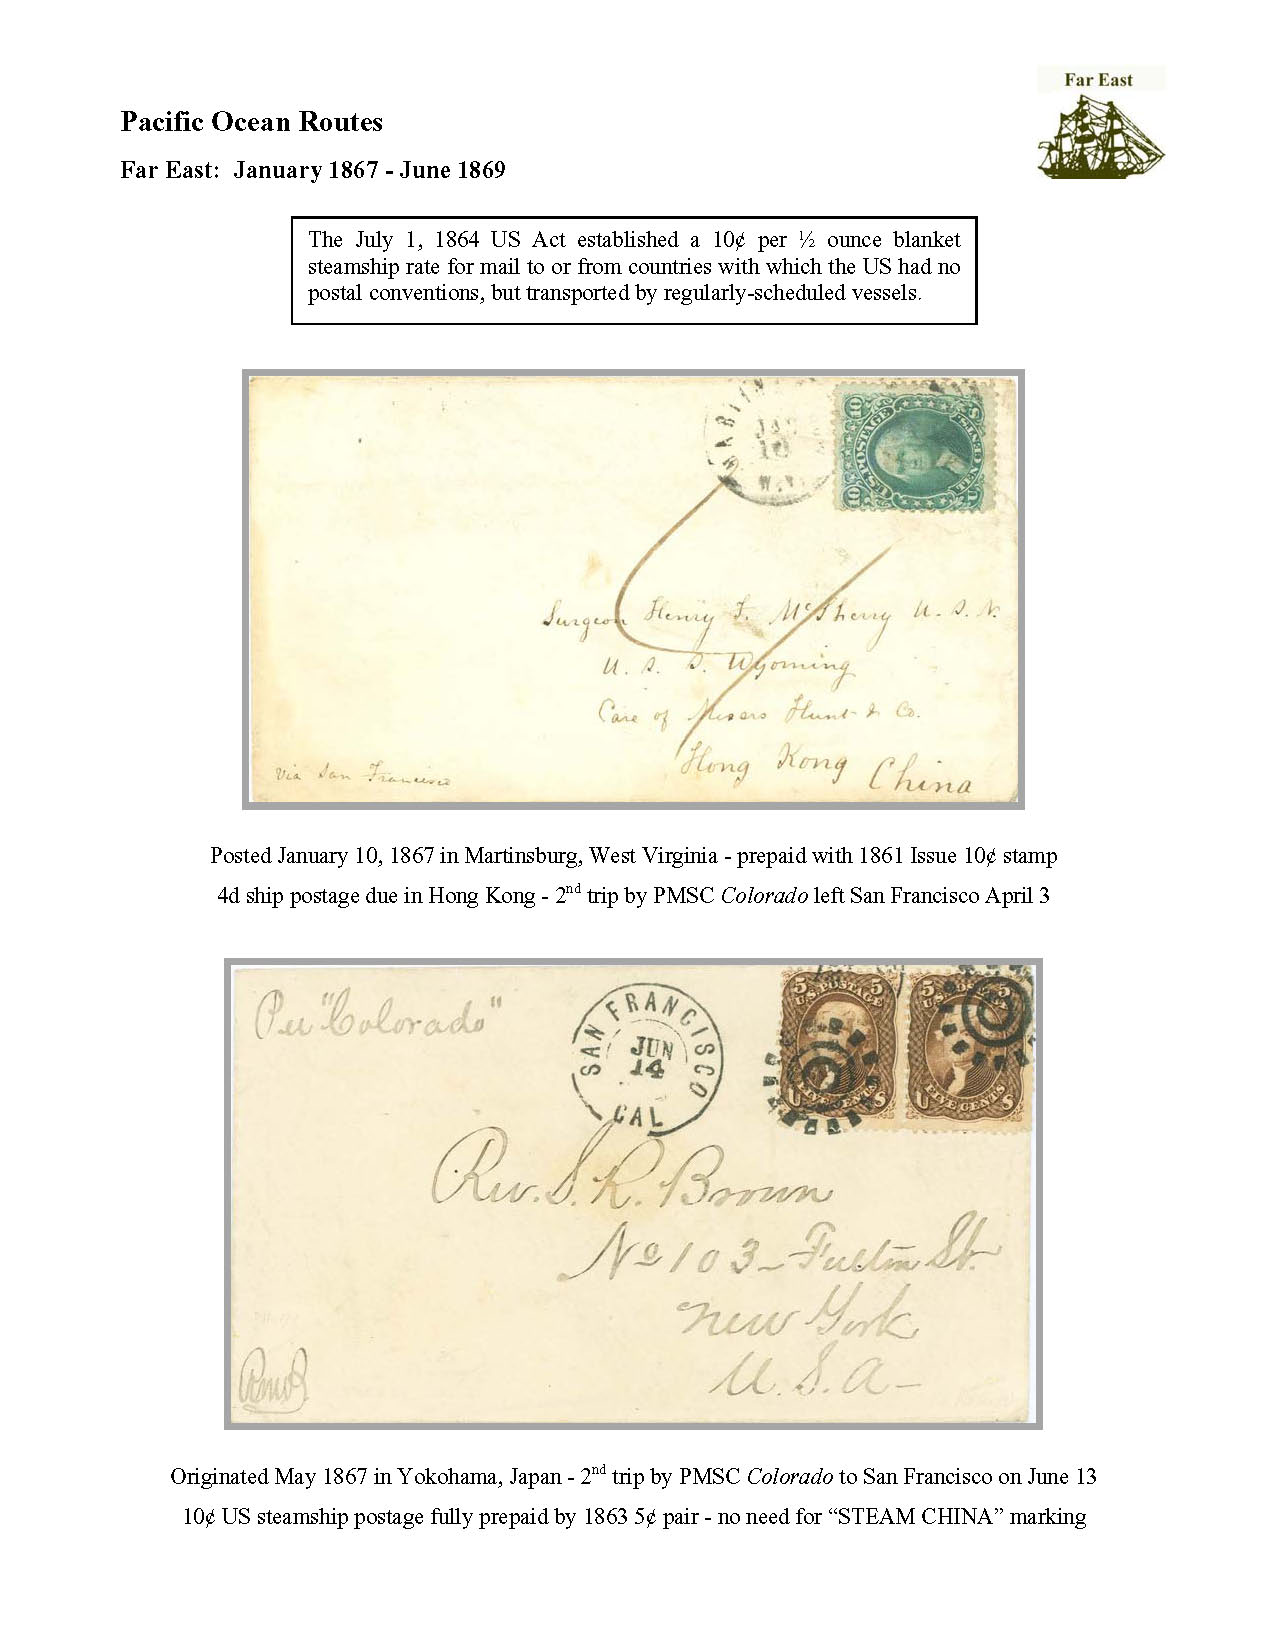 Far East
Pacific Ocean Routes
Far East: January 1867 - June 1869
The July 1, 1864 US Act established a 10¢ per ½ ounce blanket
steamship rate for mail to or from countries with which the US had no
postal conventions, but transported by regularly-scheduled vessels.
JAN
10
W.VA
10 10
U.S. POSTAGE
TEN CENTS
U S
Surgeon Henry F. McSherry U.S.N.
U.S.S. Wyoming
Care of Messrs Hunt & Co.
Hong Kong
China
Via San Francisco
Posted January 10, 1867 in Martinsburg, West Virginia - prepaid with 1861 Issue 10¢ stamp
4d ship postage due in Hong Kong - 2nd trip by PMSC Colorado left San Francisco April 3
Per "Colorado"
SAN FRANCISCO
JUN
14
CAL
5 5
U.S. POSTAGE
FIVE CENTS
U S
5 5
U.S. POSTAGE
FIVE CENTS
U S
Rev. S. R. Brown
No 103 - Fulton St.
New York
U.S.A -
Originated May 1867 in Yokohama, Japan - 2nd trip by PMSC Colorado to San Francisco on June 13
10¢ US steamship postage fully prepaid by 1863 5¢ pair - no need for “STEAM CHINA” marking